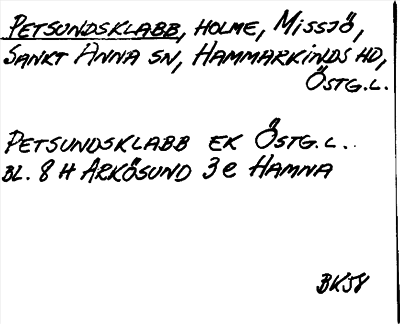 PETSUNDSKLABB, HOLME, MISSJÖ,
SANKT ANNA SN, HAMMARKINDS HD,
ÖSTG.L.
PETSUNDSKLABB EK ÖSTG.L.
BL. 8 H ARKÖSUND 3 e HAMNA
BK58